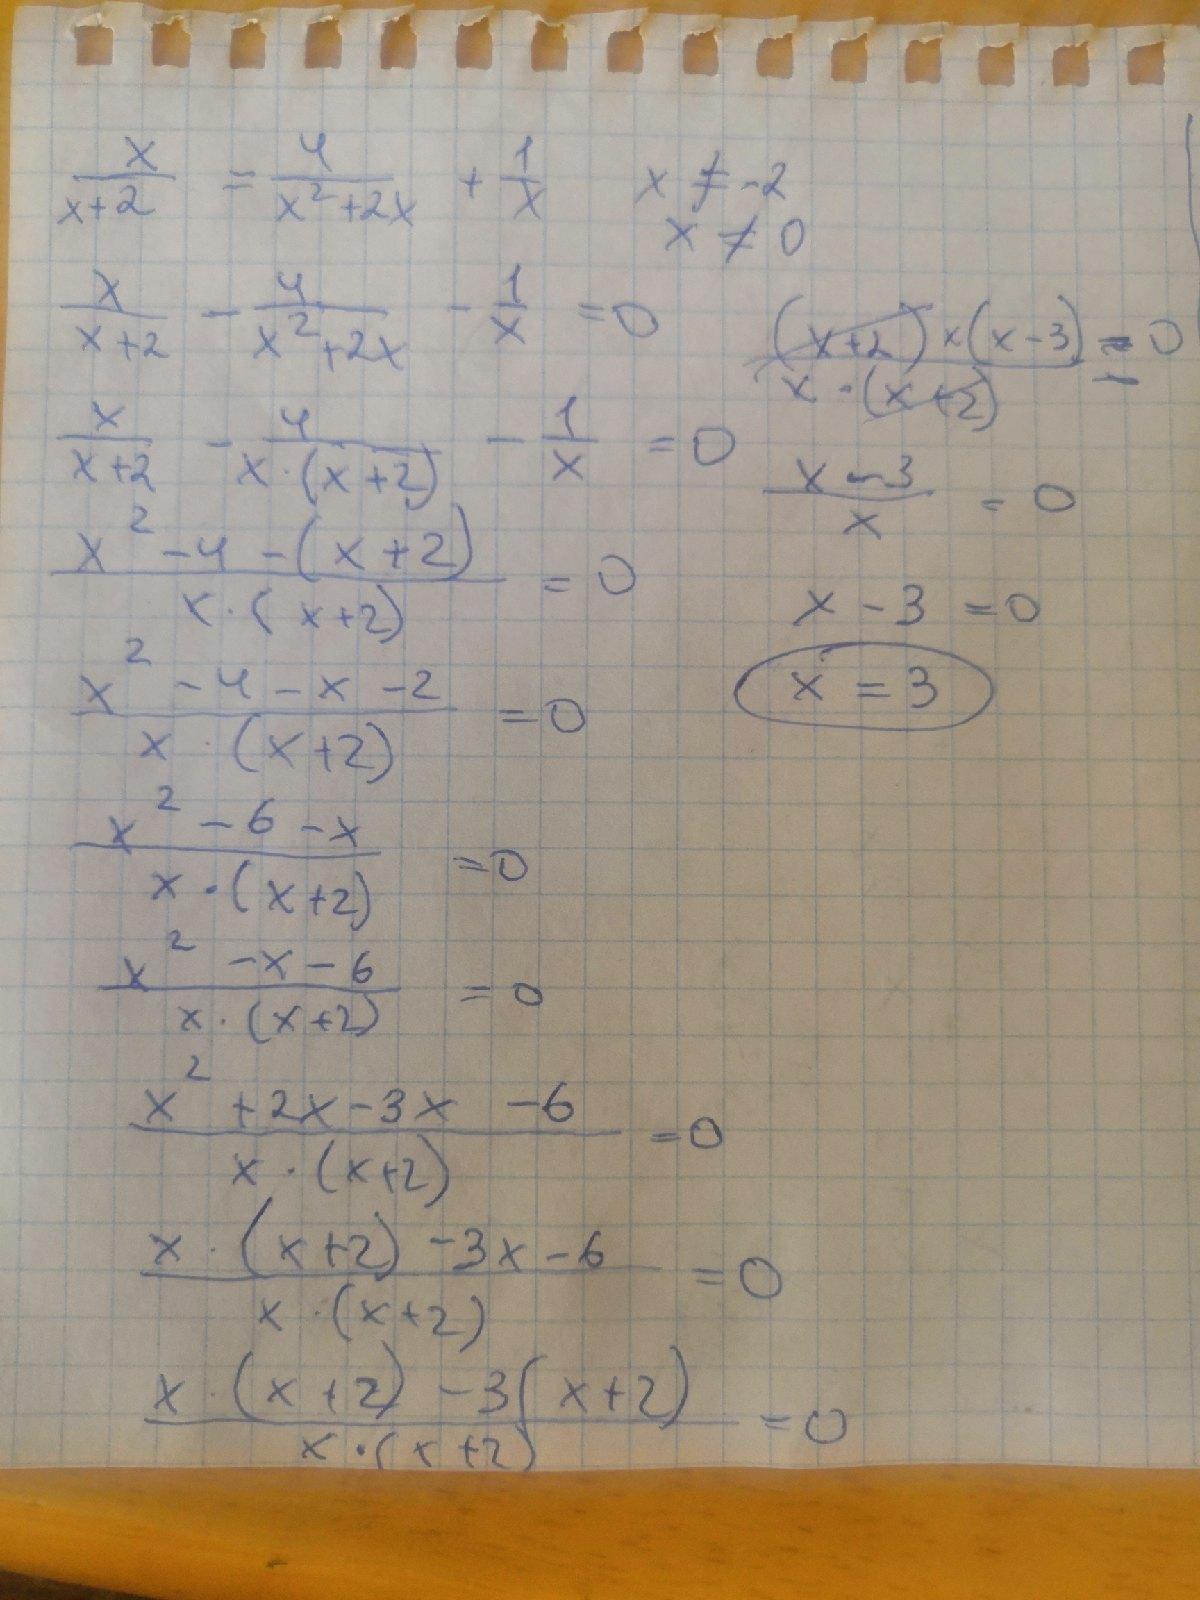 x/(x+2) = 4/(x²+2x) + 1/x    x ≠ -2
x ≠ 0
x/(x+2) - 4/(x²+2x) - 1/x = 0
x/(x+2) - 4/(x·(x+2)) - 1/x = 0
(x²-4-(x+2))/(x·(x+2)) = 0
(x²-4-x-2)/(x·(x+2)) = 0
(x²-6-x)/(x·(x+2)) = 0
(x²-x-6)/(x·(x+2)) = 0
(x²+2x-3x-6)/(x·(x+2)) = 0
(x·(x+2)-3x-6)/(x·(x+2)) = 0
(x·(x+2)-3(x+2))/(x·(x+2)) = 0
((x+2)x(x-3))/(x·(x+2)) = 0
(x-3)/x = 0
x-3 = 0
x = 3